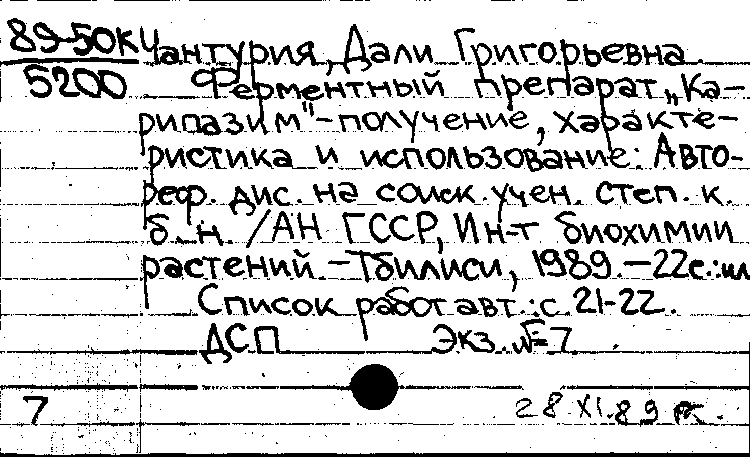 89-50К Чантурия, Дали Григорьевна
5200 Ферментный препарат „Ка-
рипазим"-получение, характе-
ристика и использование: Авто-
реф. дис. на соиск. учен. степ. к.
б. н. /АН ГССР, Ин-т биохимии
растений.-Тбилиси, 1989.-22с.:ил
Список работ авт.: с. 21-22.
ДСП Экз. №7
7 28 XI.89